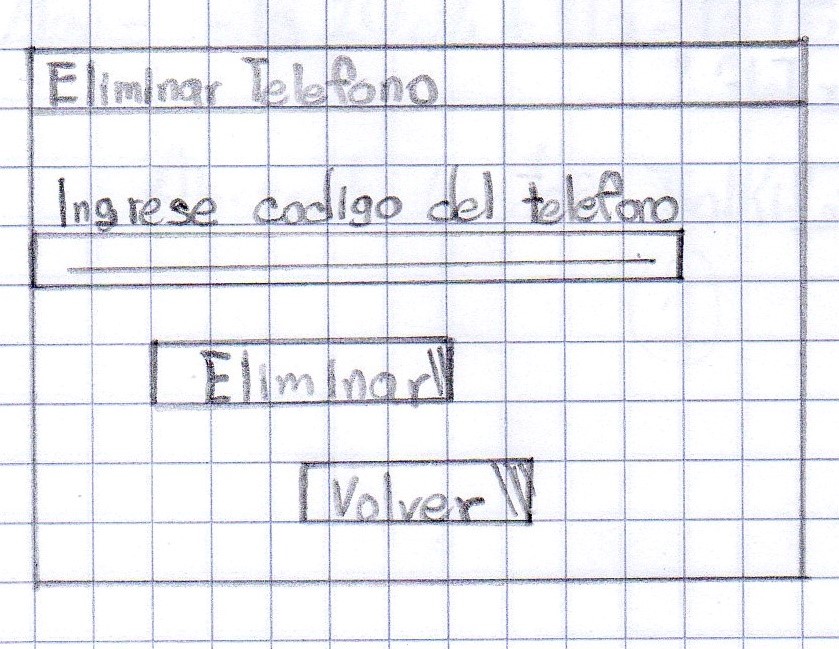 Eliminar Telefono
Ingrese codigo del telefono
Eliminar
Volver